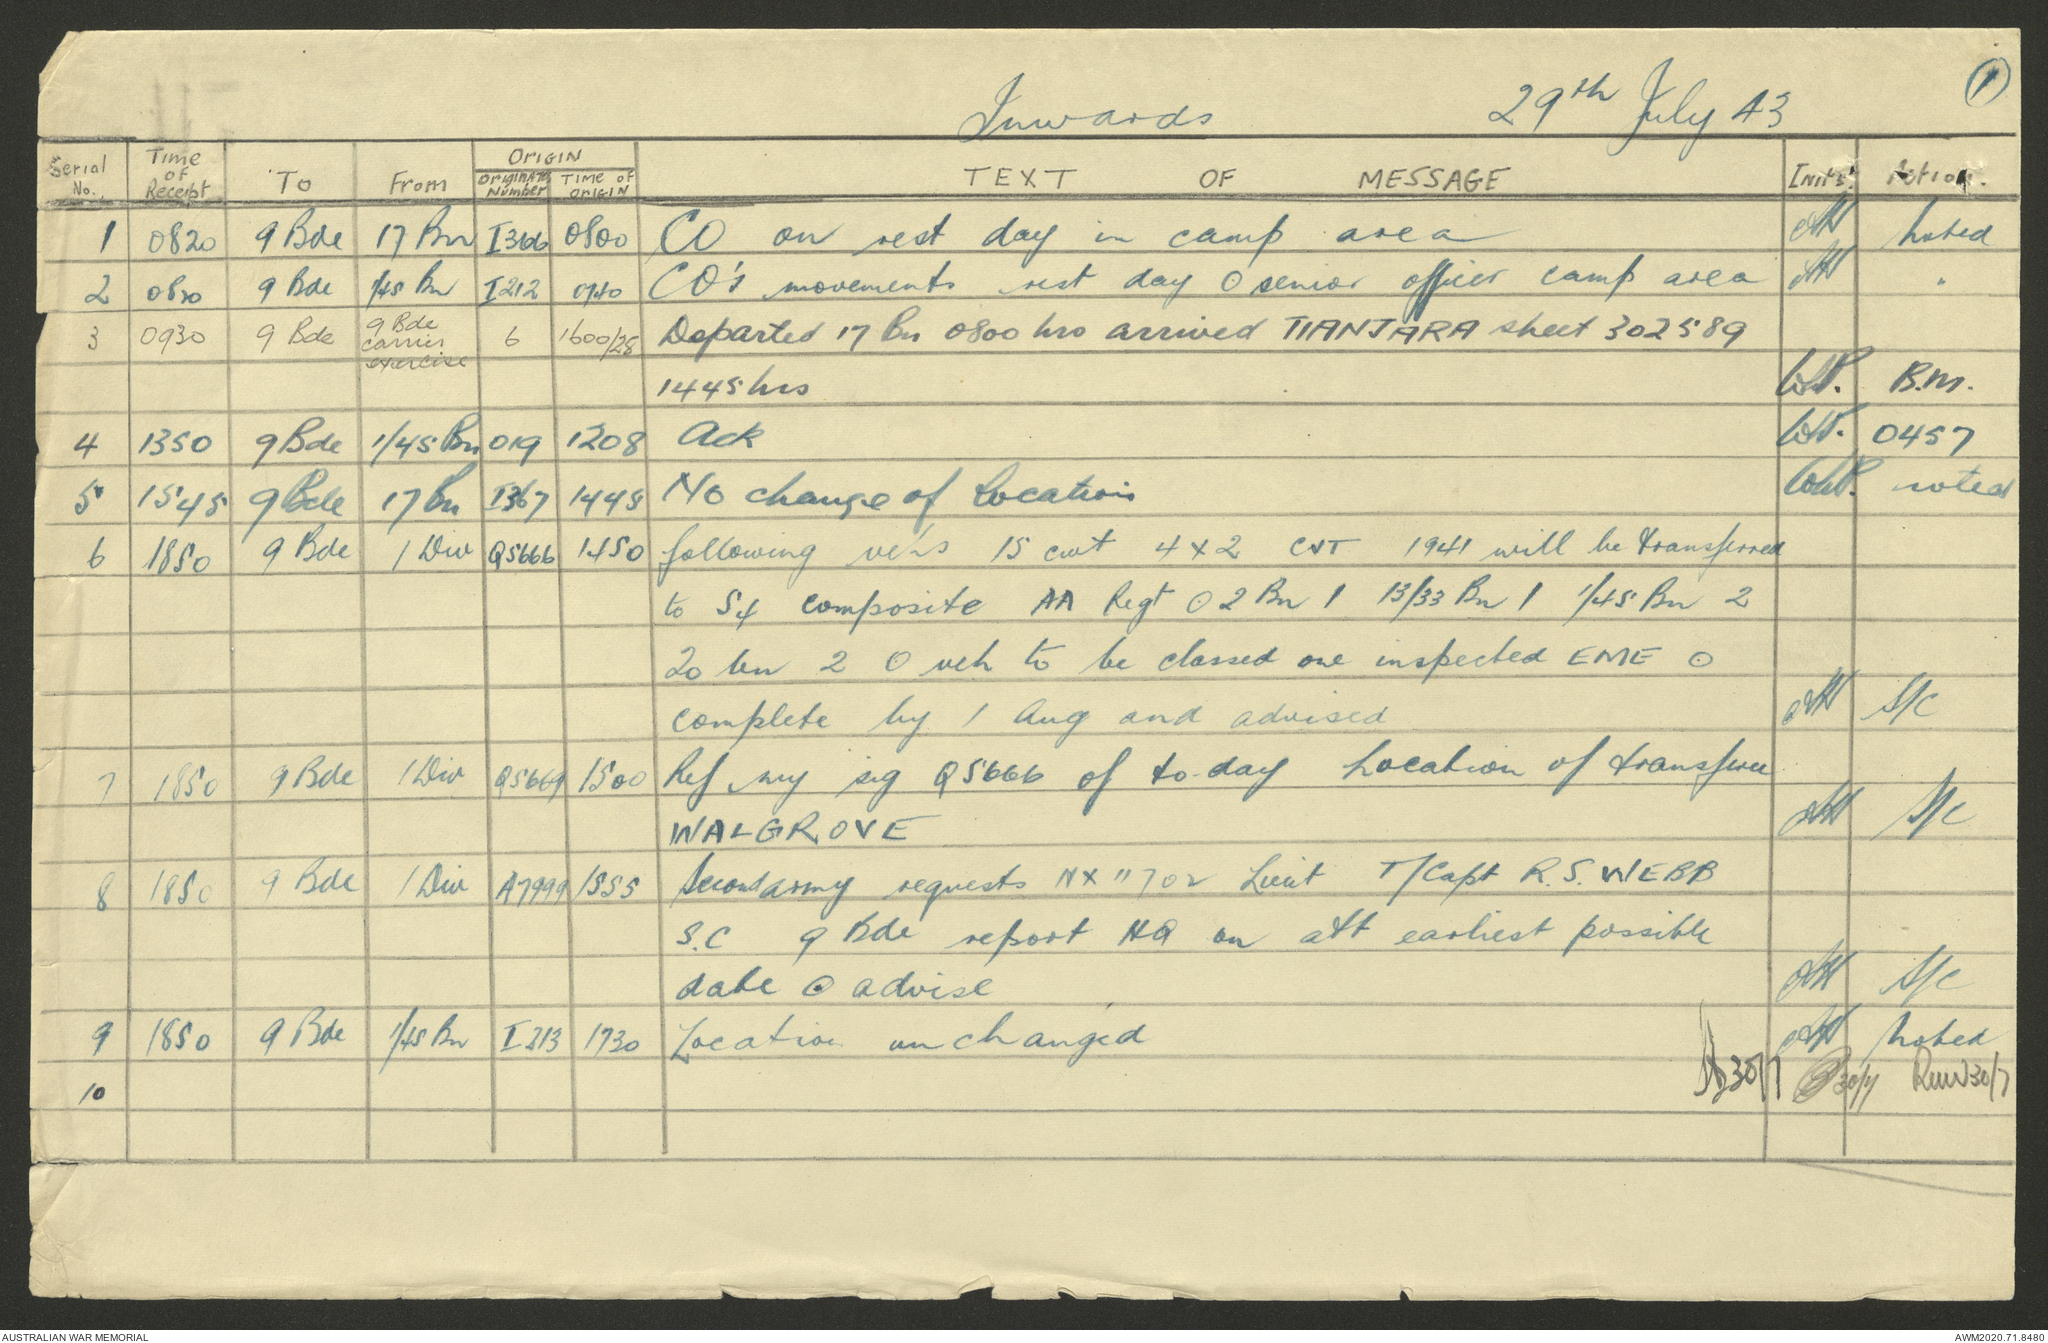 Inwards 29th July 43 1
Serial No. Time of Receipt To From ORIGIN Originator's Number Time of ORIGIN TEXT OF MESSAGE INIT'S. Action.
1 0820 9 Bde 17 Bn I366 0800 CO on rest day in camp area noted
2 0820 9 Bde 1/45 Bn I212 0740 CO's movements rest day O senior officer camp area "
3 0930 9 Bde 9 Bde carrier exercise 6 1600/28 Departed 17 Bn 0800 hrs arrived TIANJARA sheet 302589
1445 hrs B.M.
4 1350 9 Bde 1/45 Bn 019 1208 Ack 0457
5 1545 9 Bde 17 Bn I367 1445 No change of Location noted
6 1850 9 Bde 1 Div Q5666 1450 following veh's 15 cwt 4x2 1941 will be transferred
to 54 composite AA Regt ⊙ 2 Bn 1 13/33 Bn 1 1/45 Bn 2
20 bn 2 O veh to be classed one inspected EME ⊙
complete by 1 Aug and advised S/C
7 1850 9 Bde 1 Div Q5669 1500 Ref my sig Q5666 of to-day Location of transferee
WALGROVE S/C
8 1850 9 Bde 1 Div A7999 1555 Second army requests NX 11702 Lieut T/Capt R.S. WEBB
S.C 9 Bde report HQ on att earliest possible
date ⊙ advise S/C
9 1850 9 Bde 1/45 Bn I213 1730 Location unchanged noted
10 30/7 30/7 30/7
AUSTRALIAN WAR MEMORIAL AWM2020.71.8480